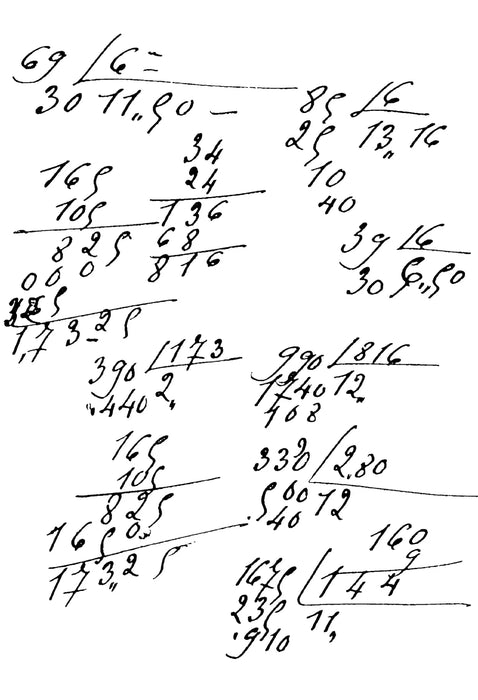 69 6 =
30 11,,50 —
85 6
25 13,, 16
10
40
34
24
136
68
816
165
105
825
000
1,73-25
39 6
30 6,,50
390 173
,,440 2,,
990 816
1740 12,,
408
165
105
825
165 0
173,,25
330 2.80
500 12
40
160
9
1675 144
235 11,,
910